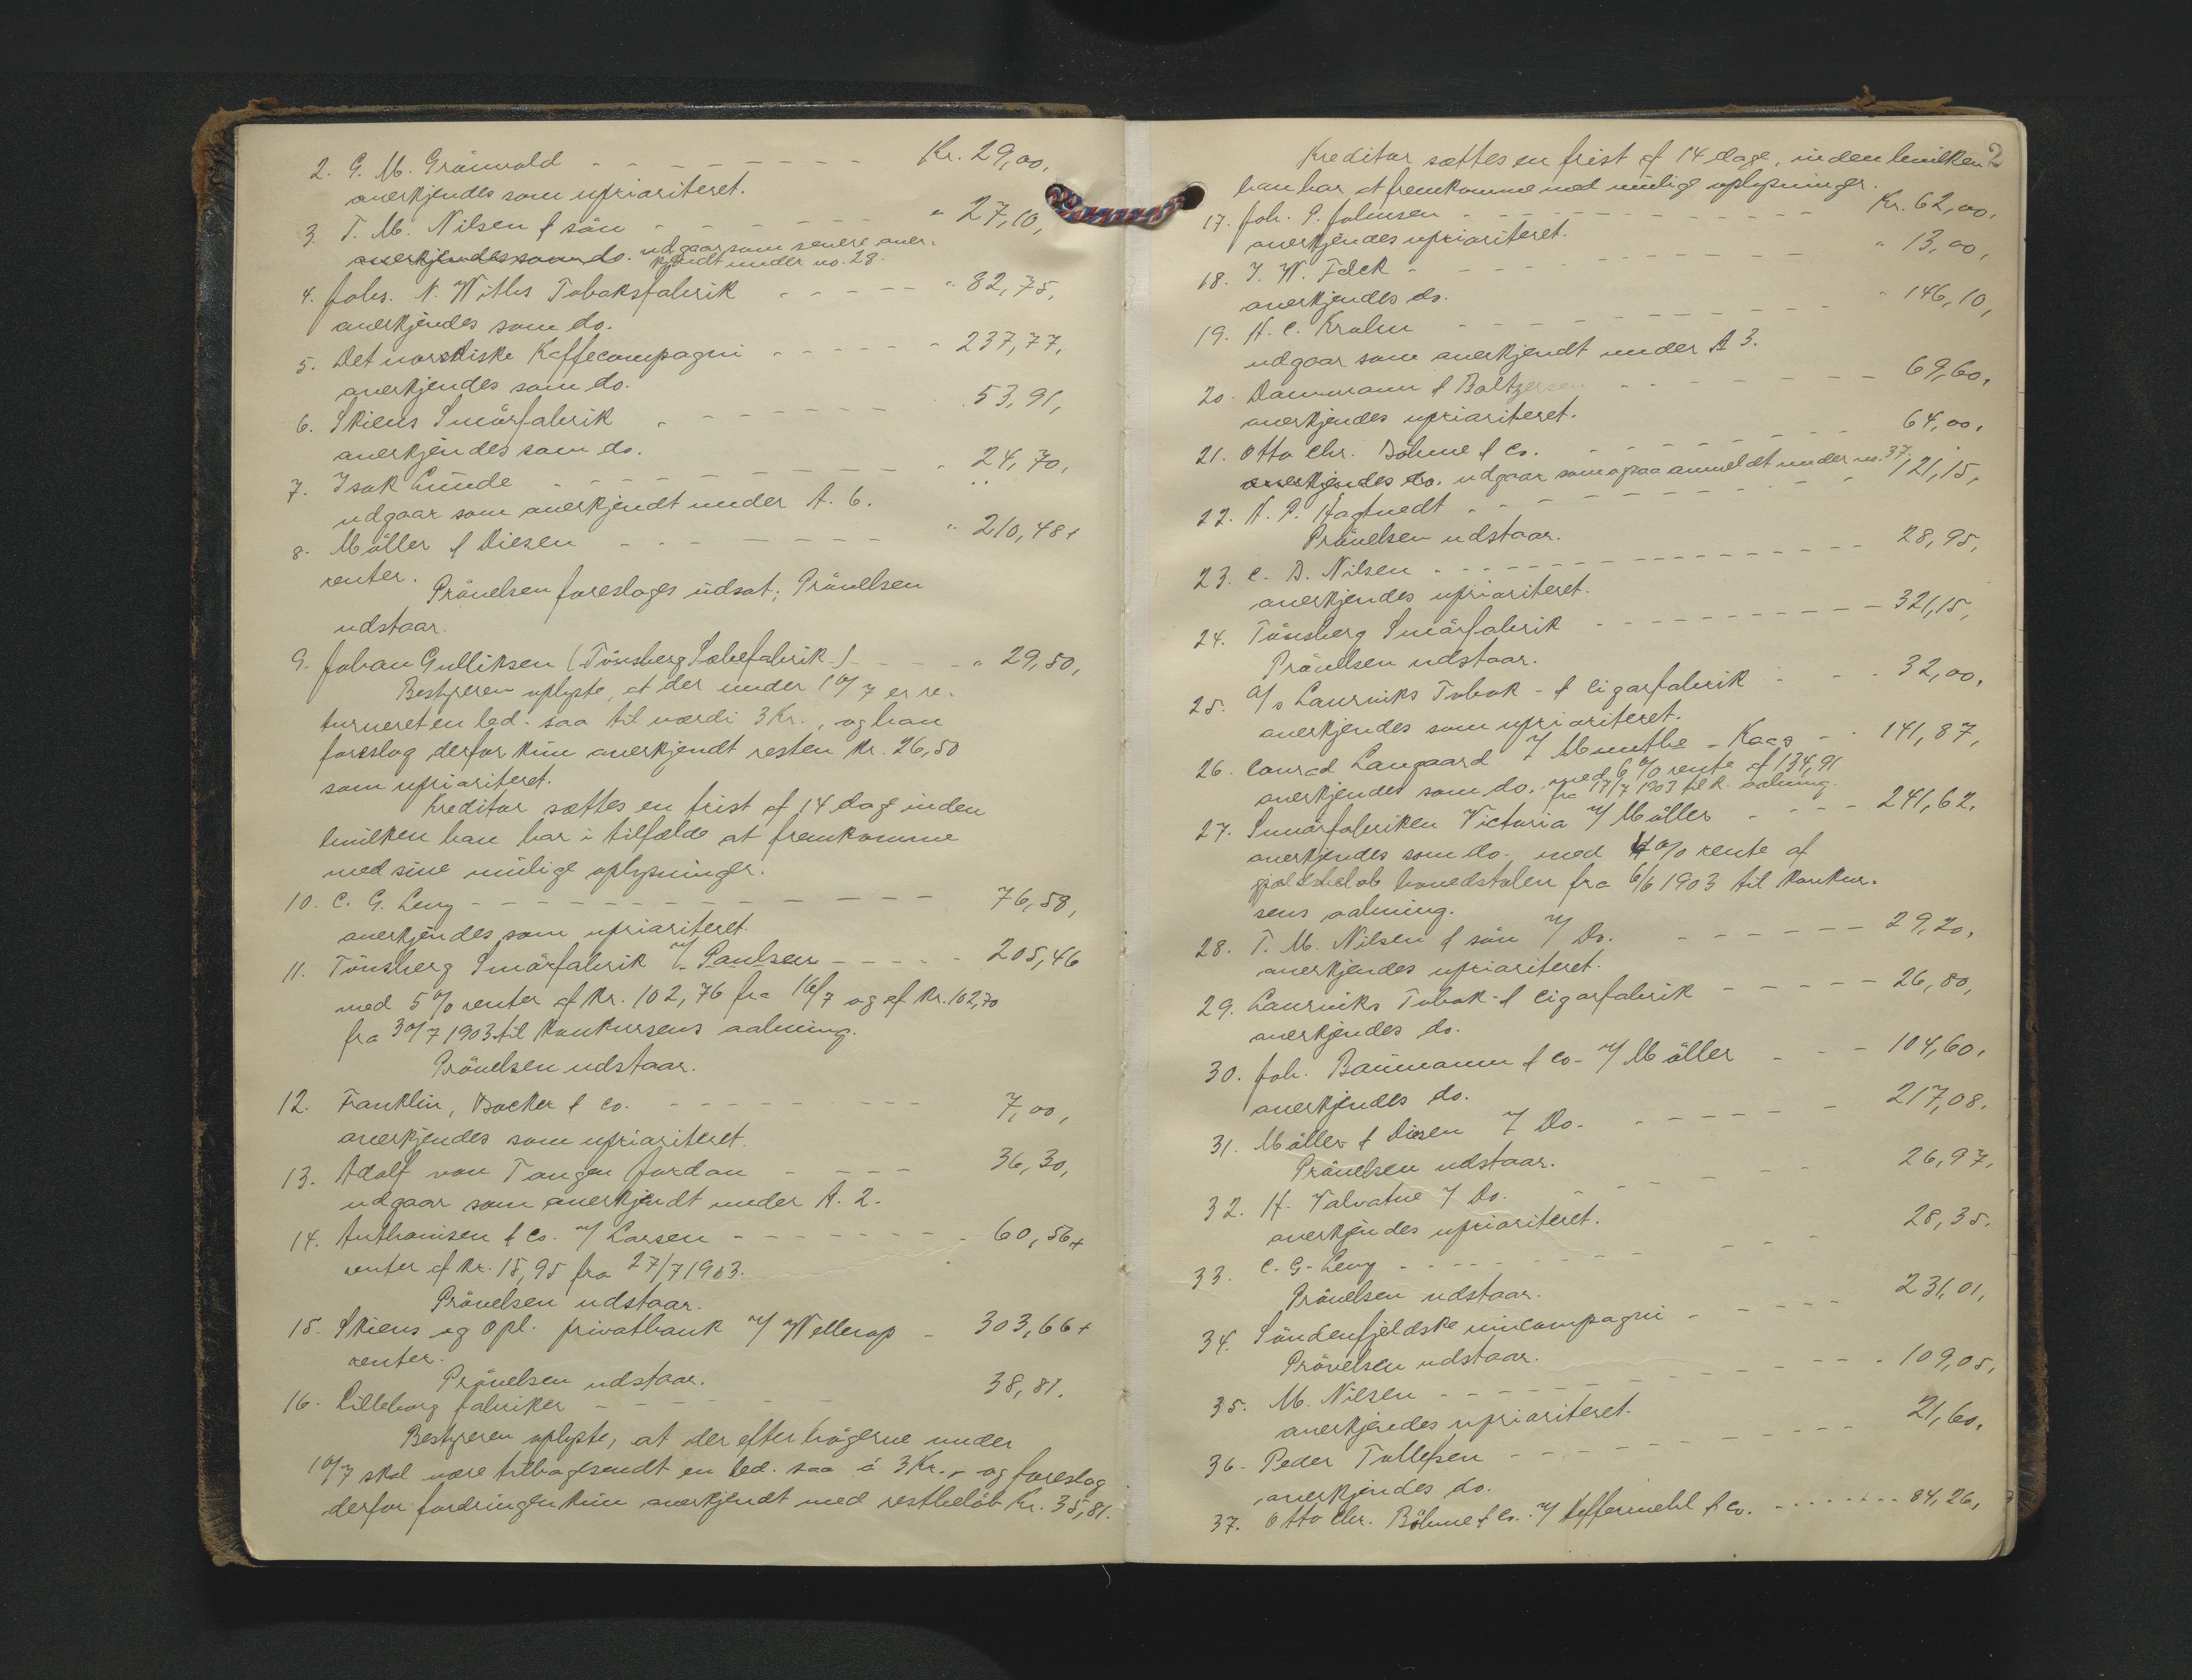 2. G. M. Grönvold - - - - - - - - Kr. 29,00,
anerkjendes som uprioriteret.
3. T. M. Nilsen & sön - - - - - - " 27,10,
anerkjendes som do. udgaar som senere aner-
kjendt under no. 28.
4. Johs. N. Withs Tobaksfabrik - - - - - " 82,75,
anerkjendes som do.
5. Det norskiske Kaffecompagni - - - - - - 237,77,
anerkjendes som do.
6. Skiens Smörfabrik - - - - - - 53,91,
anerkjendes som do.
7. Isak Lunde - - - - - - - - 24,70,
udgaar som anerkjendt under A. 6.
8. Möller & Diesen - - - - - - - " 210,48 +
renter.
Prövelsen foreslages udsat; Prövelsen
udstaar.
9. Johan Gulliksen (Tönsberg Sæbefabrik) - - - - " 29,50,
Bestyreren oplyste, at der under 10/7 er re-
turneret en led. saa til værdi 3 Kr., og han
foreslog derfor kun anerkjendt resten Kr. 26,50
som uprioriteret.
Kreditor sættes en frist af 14 dage inden
hvilken han har i tilfælde at fremkomme
med sine mulige oplysninger.
10. C. G. Levy - - - - - - - - - - - - 76,58,
anerkjendes som uprioriteret.
11. Tönsberg Smörfabrik v/ Paulsen - - - - - 205,46
med 5% renter af Kr. 102,76 fra 16/7 og af Kr. 102,70
fra 30/7 1903 til konkursens aabning.
Prövelsen udstaar.
12. Franklin, Bocker & Co. - - - - - - - - - 7,00,
anerkjendes som uprioriteret.
13. Adolf von Tangen Jordan - - - - 36,30,
udgaar som anerkjendt under A. 2.
14. Anthonisen & Co. v/ Larsen - - - - - - - - 60,56 +
renter af Kr. 15,95 fra 27/7 1903.
Prövelsen udstaar.
15. Skiens og Opl. privatbank v/ Wellerop - 303,66 +
renter.
Prövelsen udstaar.
16. Lilleborg fabriker - - - - - - - 38,81.
Bestyreren oplyste, at der efter bögerne under
10/7 skal være tilbagesendt en led. saa á 3 Kr., og foreslog
derfor fordringen kun anerkjendt med restbelöb Kr. 35,81.
2
Kreditor sættes en frist af 14 dage, inden hvilken
han har at fremkomme med mulige oplysninger.
17. Joh. P. Johnsen - - - - - - - - - - - Kr. 62,00,
anerkjendes uprioriteret.
18. J. W. Falck - - - - - - - - - " 13,00,
anerkjendes do.
19. H. C. Krohn - - - - - - - - - - - 146,10,
udgaar som anerkjendt under A 3.
20. Dammann & Baltzersen - - - - - - - - 69,60,
anerkjendes uprioriteret.
21. Otto Chr. Böhme & Co. - - - - - - - 64,00,
anerkjendes do. udgaar som ogsaa anmeldt under no. 37.
22. N. P. Hagtvedt - - - - - - - - - - 121,15,
Prövelsen udstaar.
23. C. D. Nilsen - - - - - - - - - - - - 28,95,
anerkjendes uprioriteret.
24. Tönsberg Smörfabrik - - - - - - - - - - 321,15,
Prövelsen udstaar.
25. A/s Laurviks Tobak- & Cigarfabrik - - - 32,00,
anerkjendes som uprioriteret.
26. Conrad Langaard v/ Munthe-Kaas - - 141,87,
anerkjendes som do. med 6% rente af 134,91
fra 17/7 1903 til k. aabning.
27. Smörfabriken Victoria v/ Möller - - - - 241,62.
anerkjendes som do. med 4% rente af
gjældsbeløb hovedstolen fra 6/6 1903 til konkur-
sens aabning.
28. T. M. Nilsen & sön v/ Do. - - - - - - - 29,20,
anerkjendes uprioriteret.
29. Laurviks Tobak- & Cigarfabrik - - - - - 26,80,
anerkjendes do.
30. Joh. Baumann & Co. v/ Möller - - - 104,60,
anerkjendes do.
31. Möller & Diesen v/ Do. - - - - - - 217,08.
Prövelsen udstaar.
32. H. Valvatne v/ Do. - - - - - - 26,97.
anerkjendes uprioriteret.
33. C. G. Levy - - - - - - - - - 28,35.
Prövelsen udstaar.
34. Söndenfjeldske vincompagni - - - - - 231,01,
Prövelsen udstaar.
35. M. Nilsen - - - - - - - - - - - - 109,05,
anerkjendes uprioriteret.
36. Peder Tollefsen - - - - - - - - - - 21,60,
anerkjendes do.
37. Otto Chr. Böhme & Co. v/ Heffermehl & Co. - - - - - - - - 84,26,